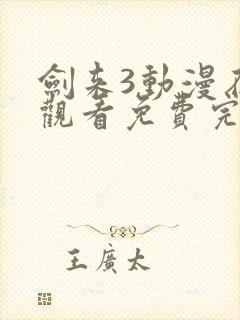 劍来3動漫
觀看免費完
王廣太